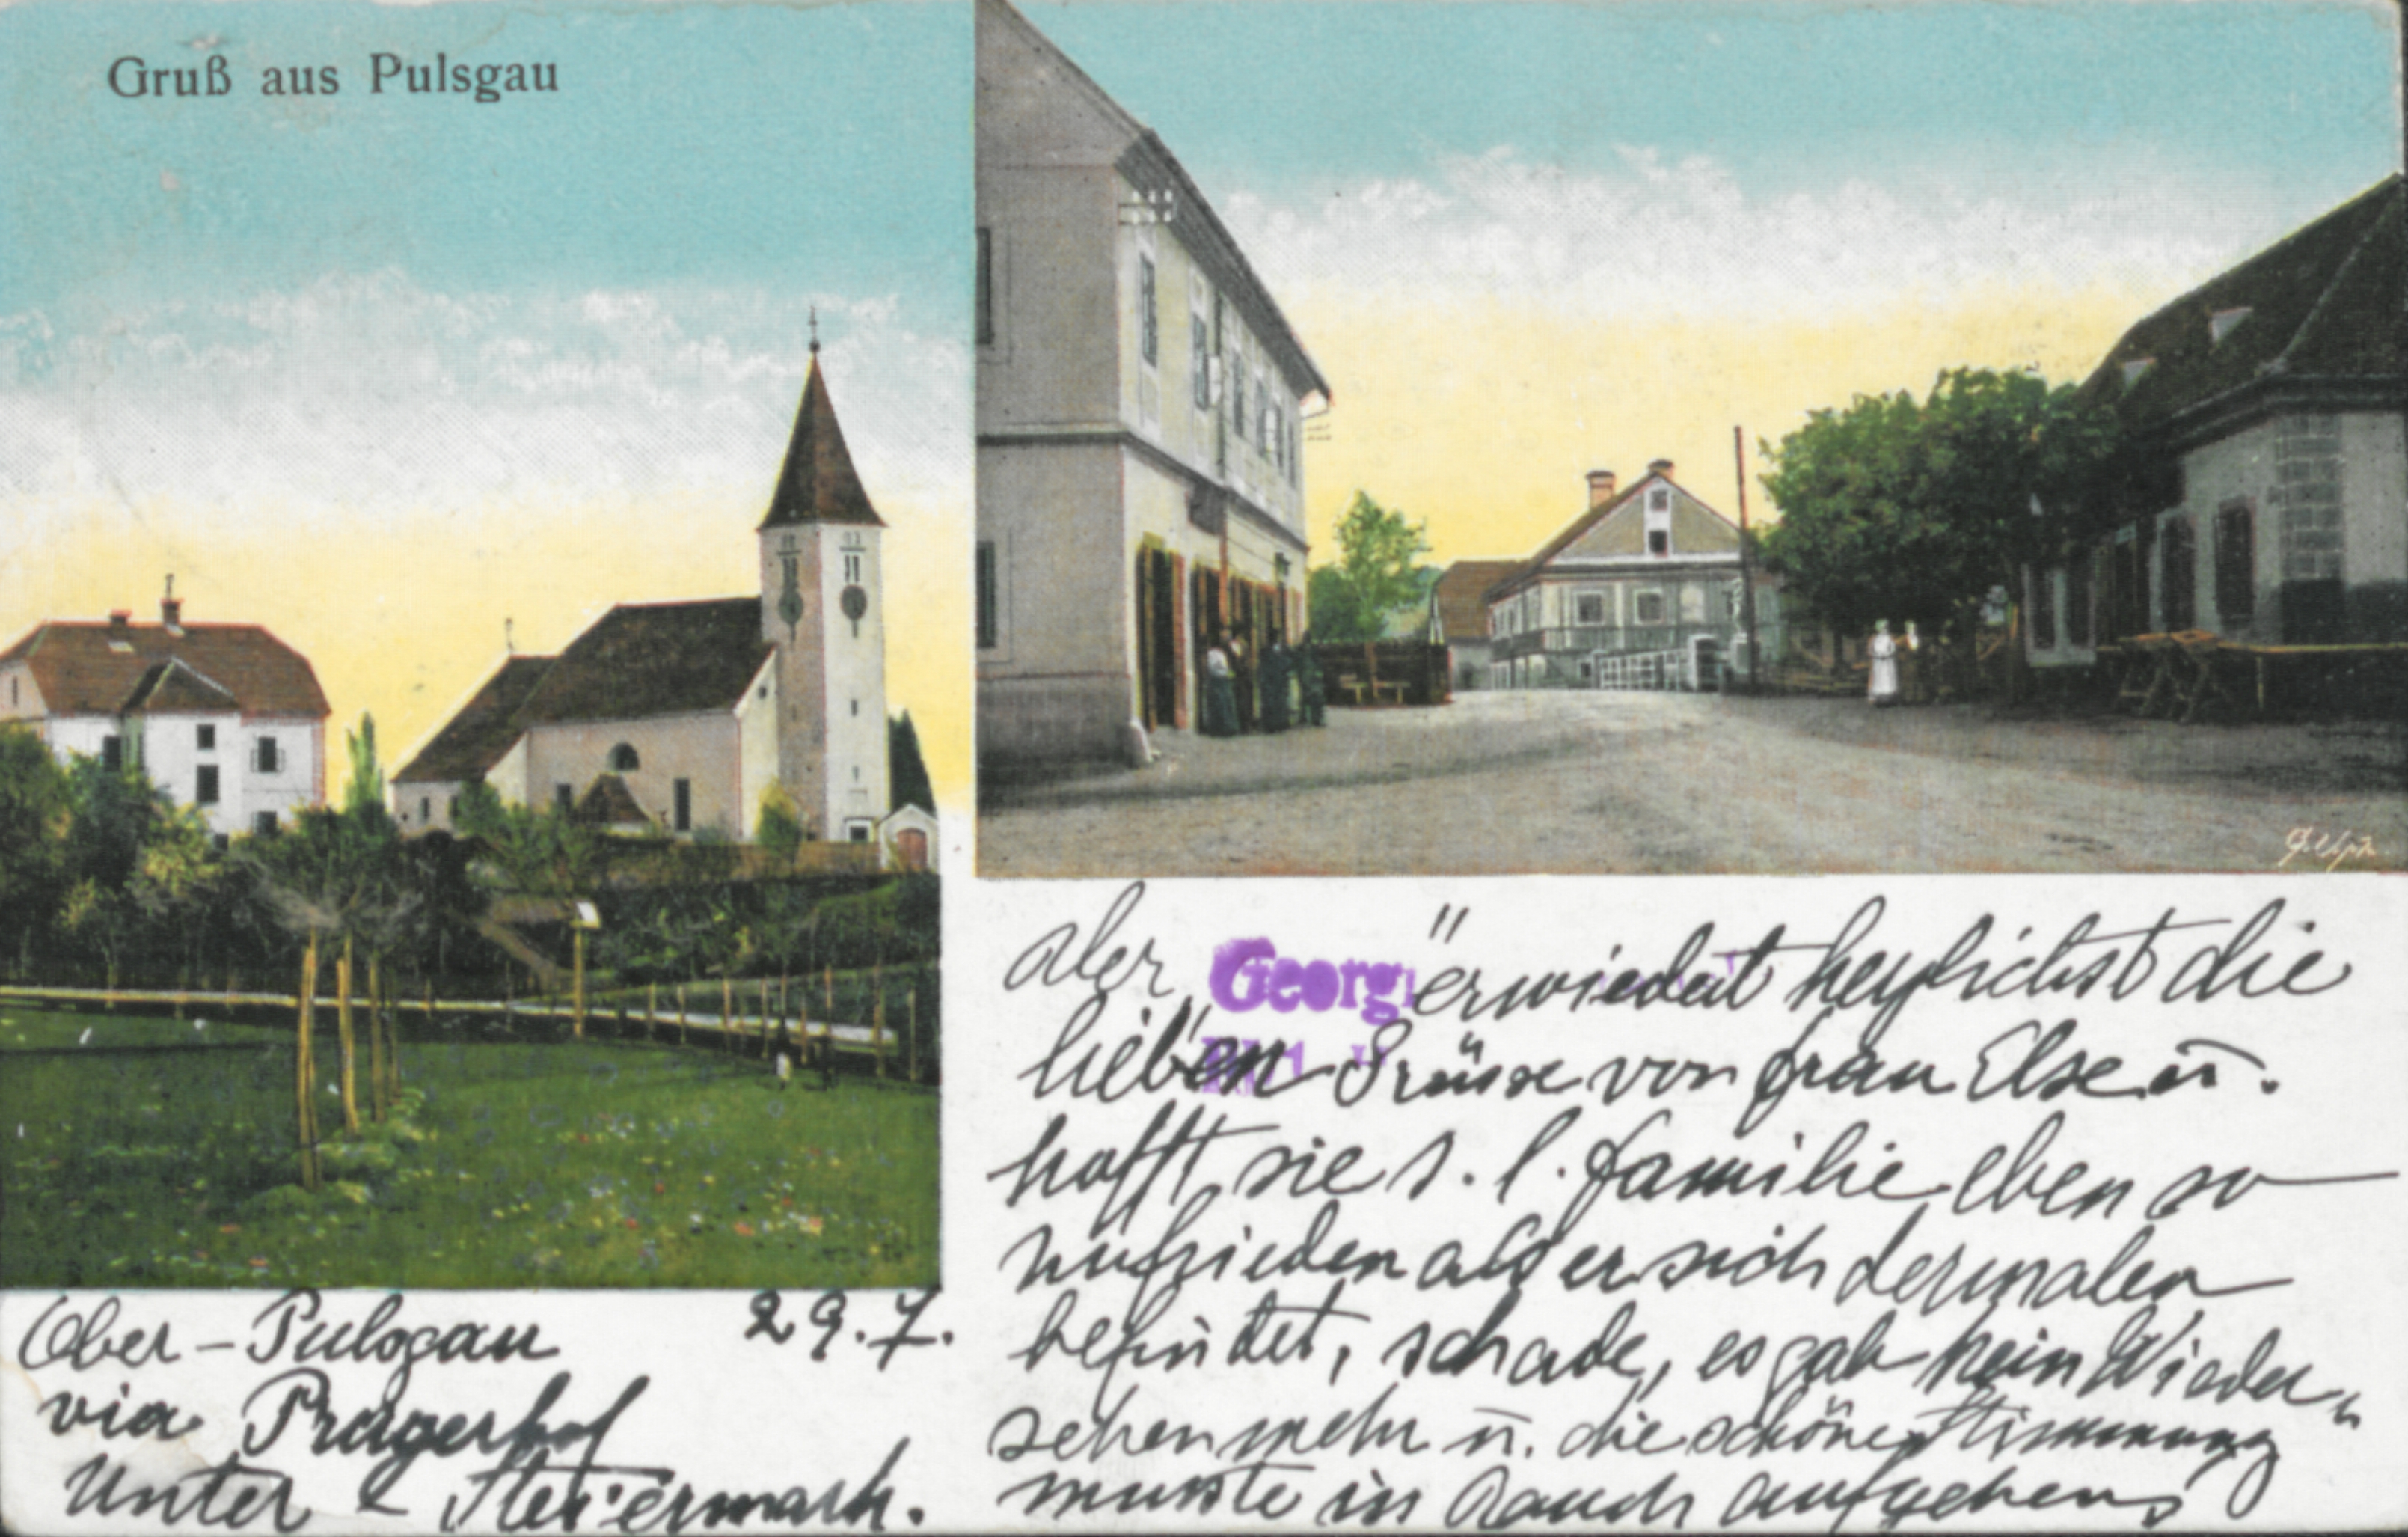 Gruß aus Pulsgau
Ober – Pulsgau 29.7.
via Pragerhof
Unter – Steiermark.
aber „Georg" erwiedert herzlichst die
lieben Grüsse von Frau Else u.
hofft sie s. l. Familie eben so
zufrieden als er sich dermalen
befindet, schade, es gab kein Wieder„
sehen mehr u. die schöne Stimmung
musste in Rauch aufgehen